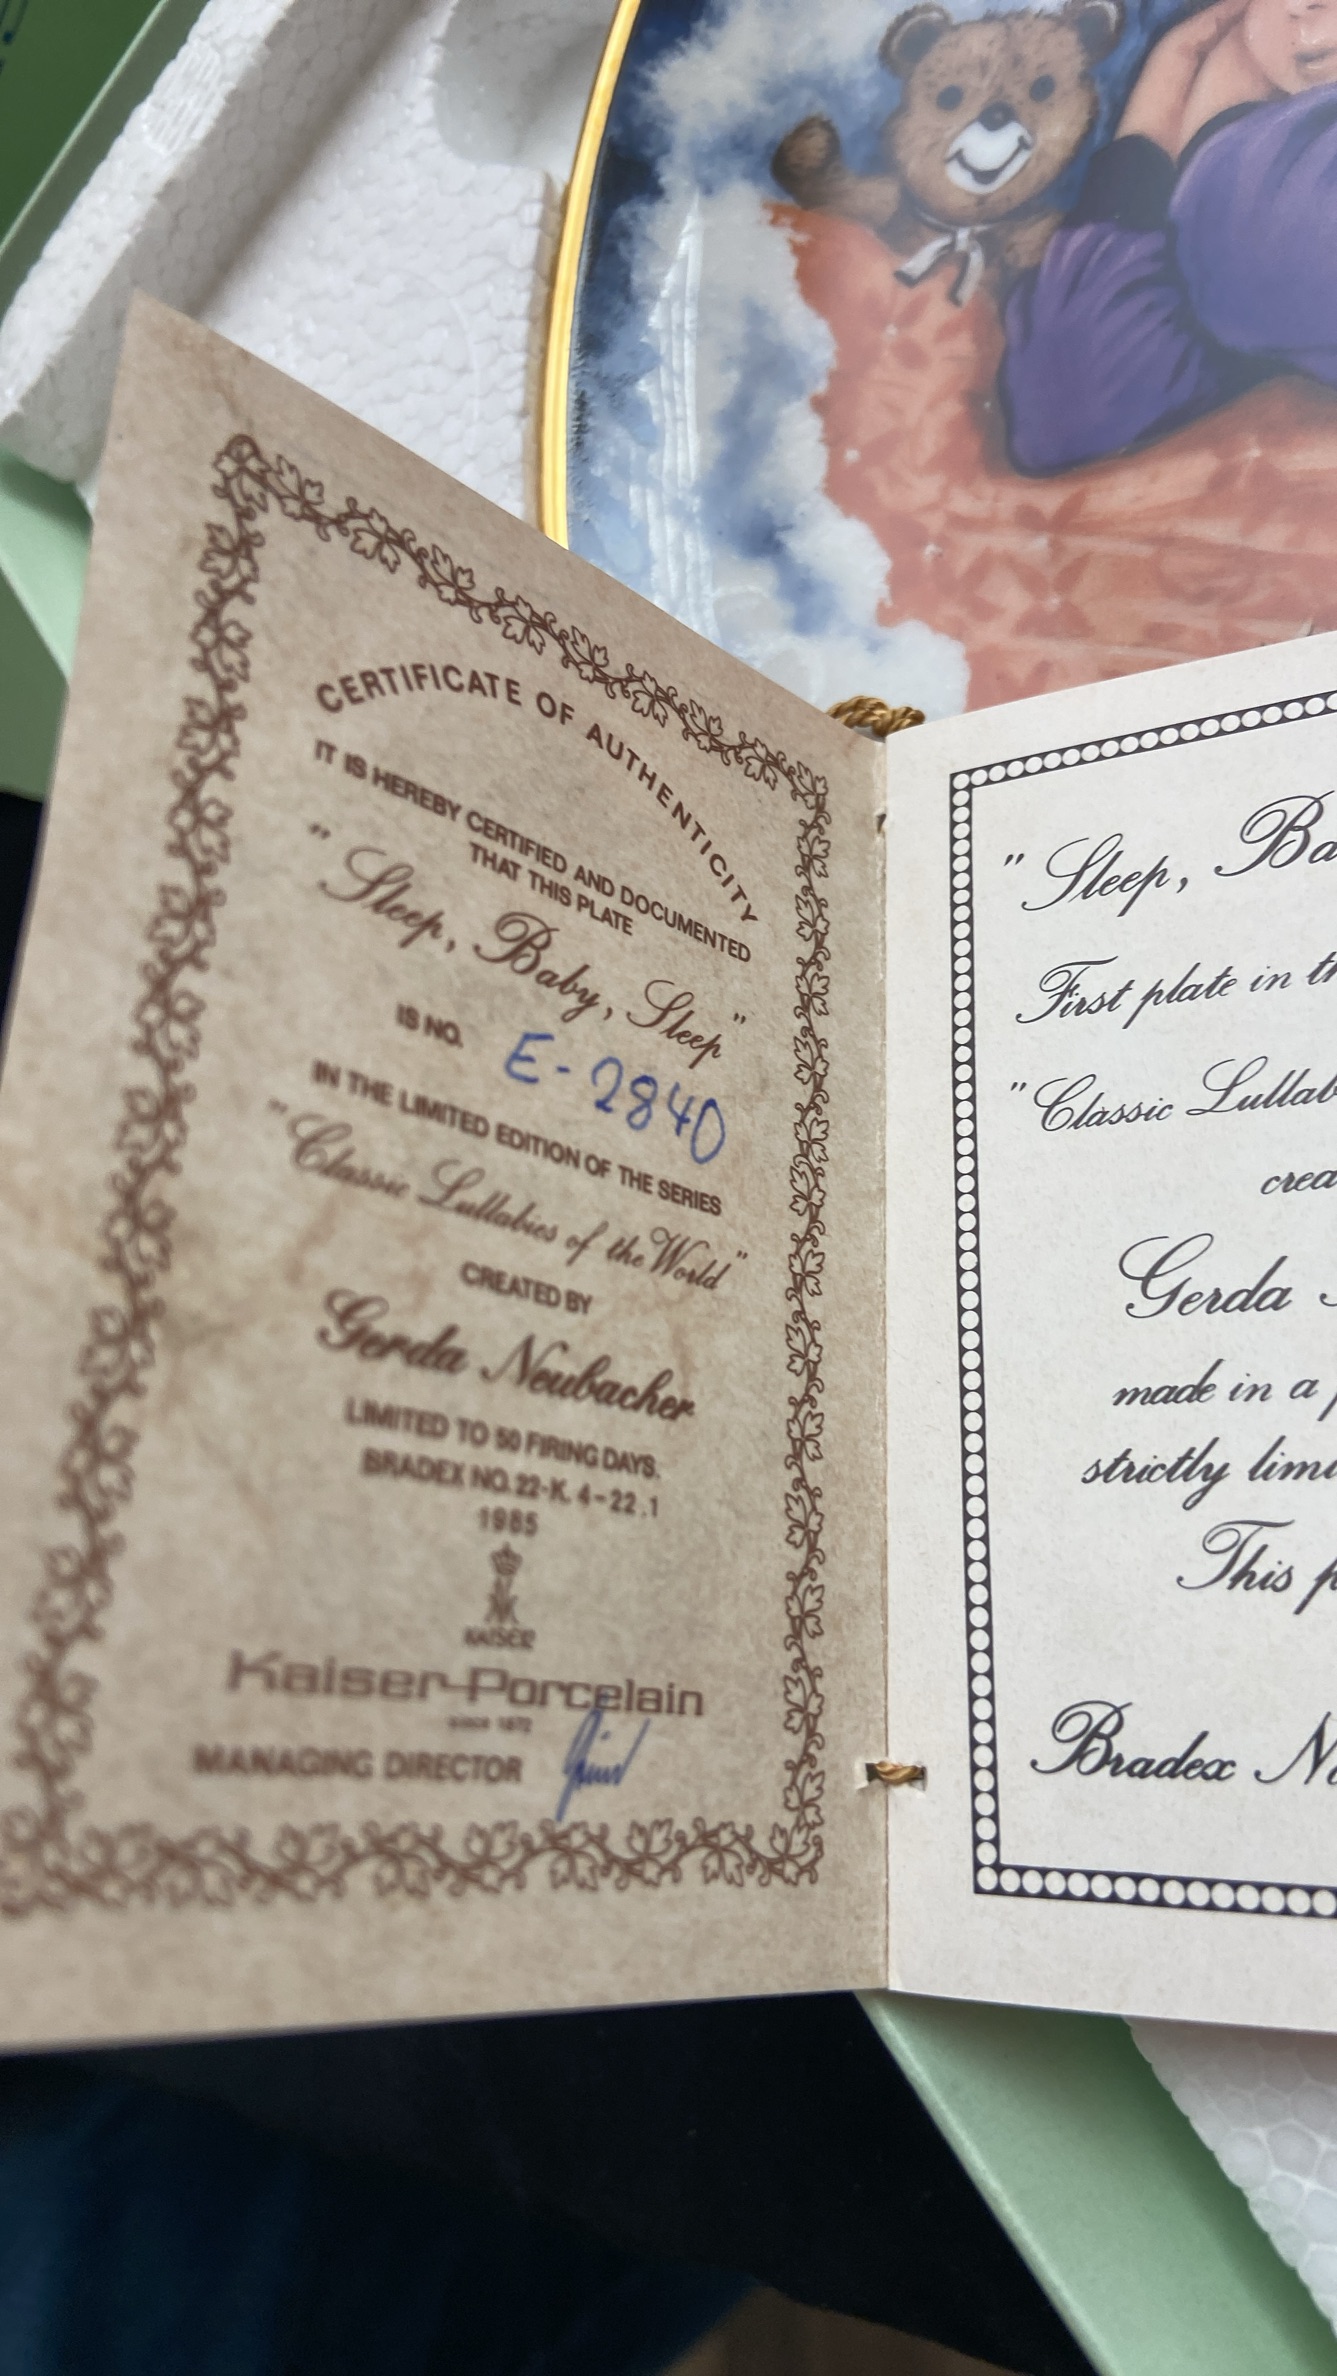 CERTIFICATE OF AUTHENTICITY
IT IS HEREBY CERTIFIED AND DOCUMENTED
THAT THIS PLATE
"Sleep, Baby, Sleep"
IS NO. E-2840
IN THE LIMITED EDITION OF THE SERIES
"Classic Lullabies of the World"
CREATED BY
Gerda Neubacher
LIMITED TO 50 FIRING DAYS.
BRADEX NO. 22-K. 4-22.1
1985
KAISER
Kaiser-Porcelain
SINCE 1872
MANAGING DIRECTOR
"Sleep, Ba
First plate in th
"Classic Lullab
crea
Gerda
made in a p
strictly limi
This p
Bradex